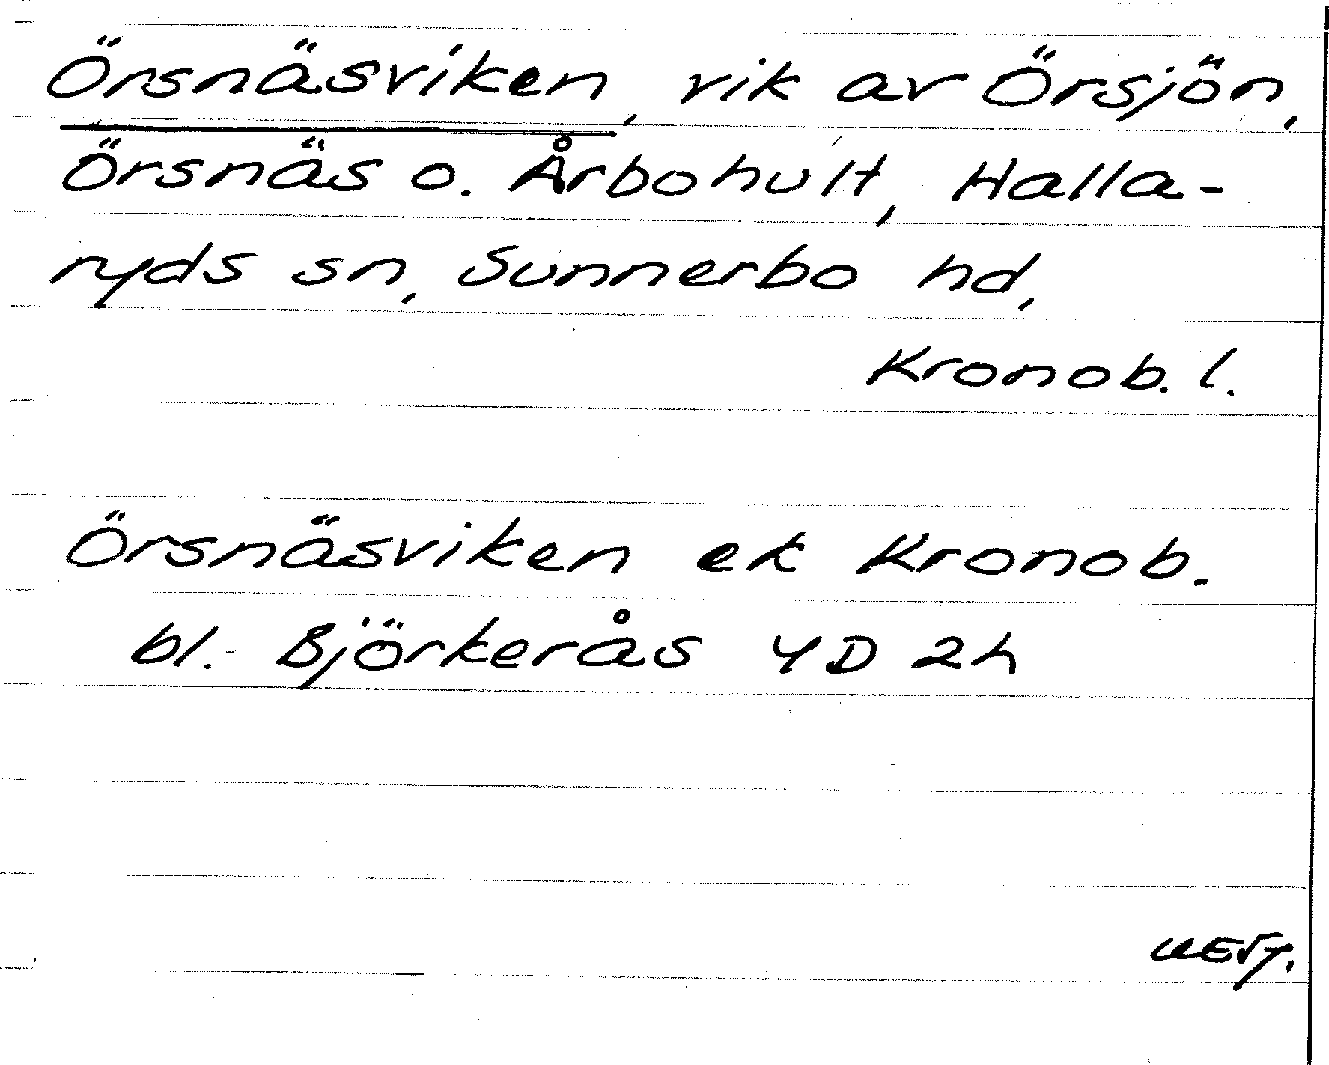 Örsnäsviken, vik av Örsjön,
Örsnäs o. Årbohult, Halla-
ryds sn, Sunnerbo hd,
Kronob. l.
Örsnäsviken ek Kronob.
bl. Björkerås 4D 2h